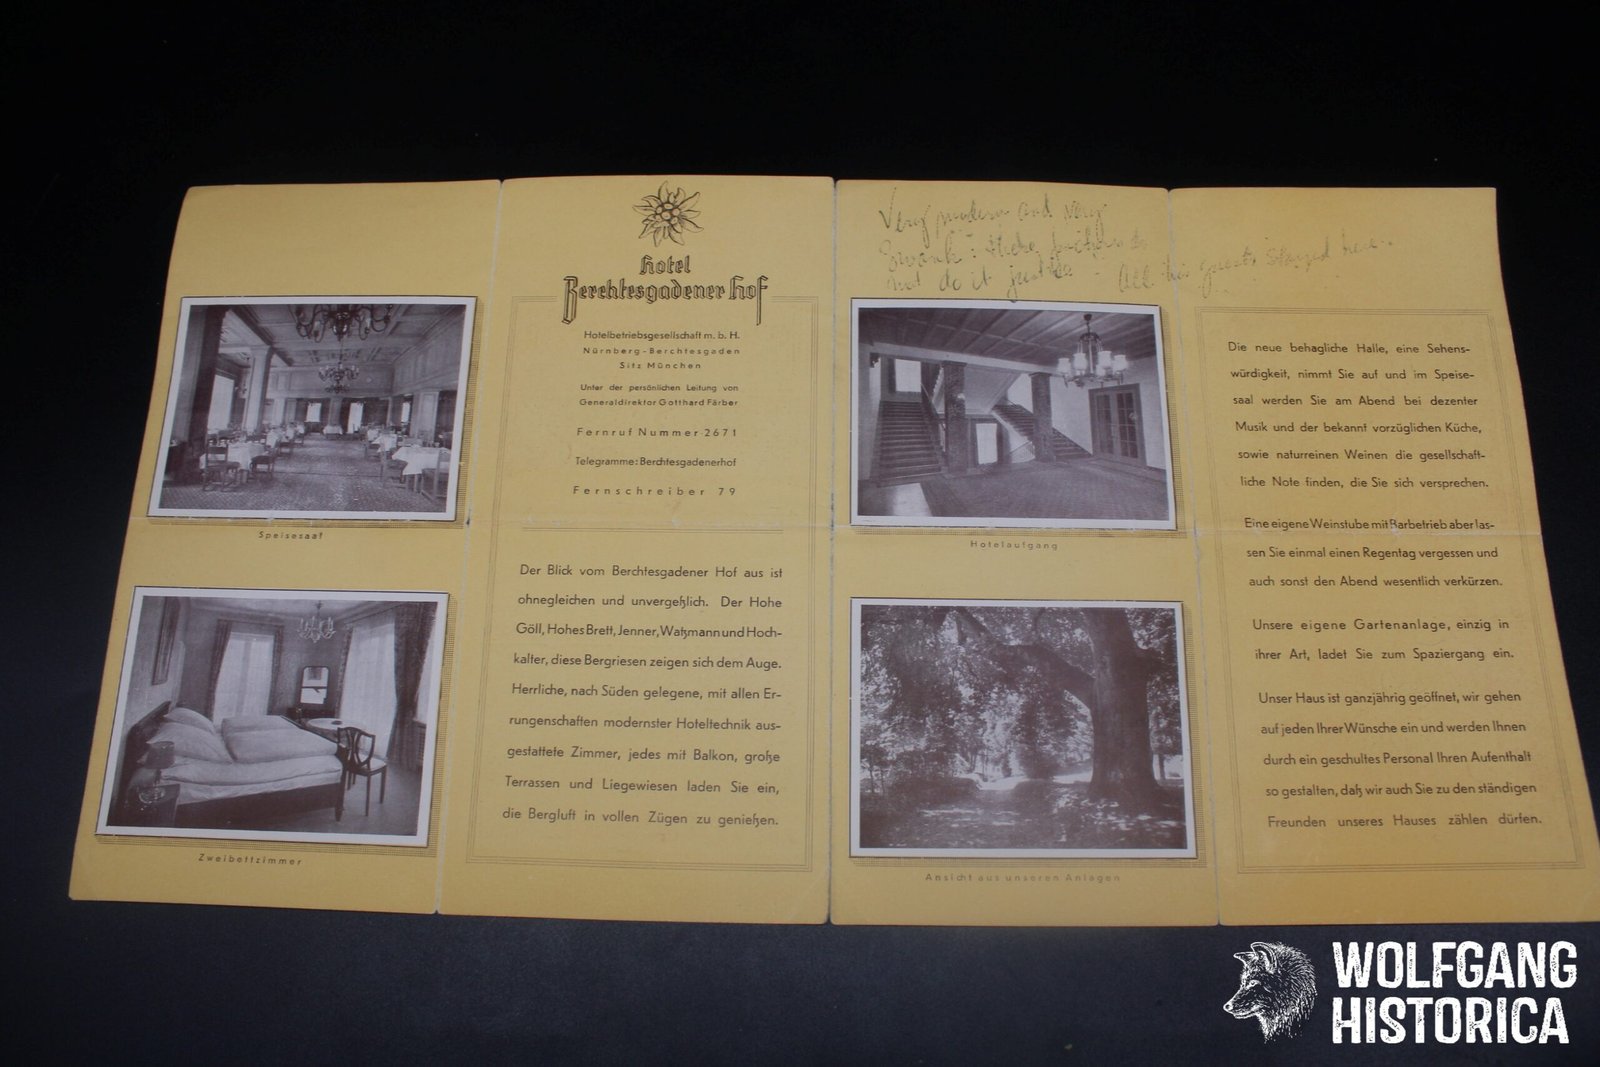 Speisesaal
Zweibettzimmer
Hotel
Berchtesgadener Hof
Hotelbetriebsgesellschaft m. b. H.
Nürnberg-Berchtesgaden
Sitz München
Unter der persönlichen Leitung von
Generaldirektor Gotthard Färber
Fernruf Nummer 2671
Telegramme: Berchtesgadenerhof
Fernschreiber 79
Der Blick vom Berchtesgadener Hof aus ist
ohnegleichen und unvergeßlich. Der Hohe
Göll, Hohes Brett, Jenner, Watzmann und Hoch-
kalter, diese Bergriesen zeigen sich dem Auge.
Herrliche, nach Süden gelegene, mit allen Er-
rungenschaften modernster Hoteltechnik aus-
gestattete Zimmer, jedes mit Balkon, große
Terrassen und Liegewiesen laden Sie ein,
die Bergluft in vollen Zügen zu genießen.
Very modern and very
swank: these pictures do
not do it justice - All his guests stayed here.
Hotelaufgang
Ansicht aus unseren Anlagen
Die neue behagliche Halle, eine Sehens-
würdigkeit, nimmt Sie auf und im Speise-
saal werden Sie am Abend bei dezenter
Musik und der bekannt vorzüglichen Küche,
sowie naturreinen Weinen die gesellschaft-
liche Note finden, die Sie sich versprechen.
Eine eigene Weinstube mit Barbetrieb aber las-
sen Sie einmal einen Regentag vergessen und
auch sonst den Abend wesentlich verkürzen.
Unsere eigene Gartenanlage, einzig in
ihrer Art, ladet Sie zum Spaziergang ein.
Unser Haus ist ganzjährig geöffnet, wir gehen
auf jeden Ihrer Wünsche ein und werden Ihnen
durch ein geschultes Personal Ihren Aufenthalt
so gestalten, daß wir auch Sie zu den ständigen
Freunden unseres Hauses zählen dürfen.
WOLFGANG
HISTORICA